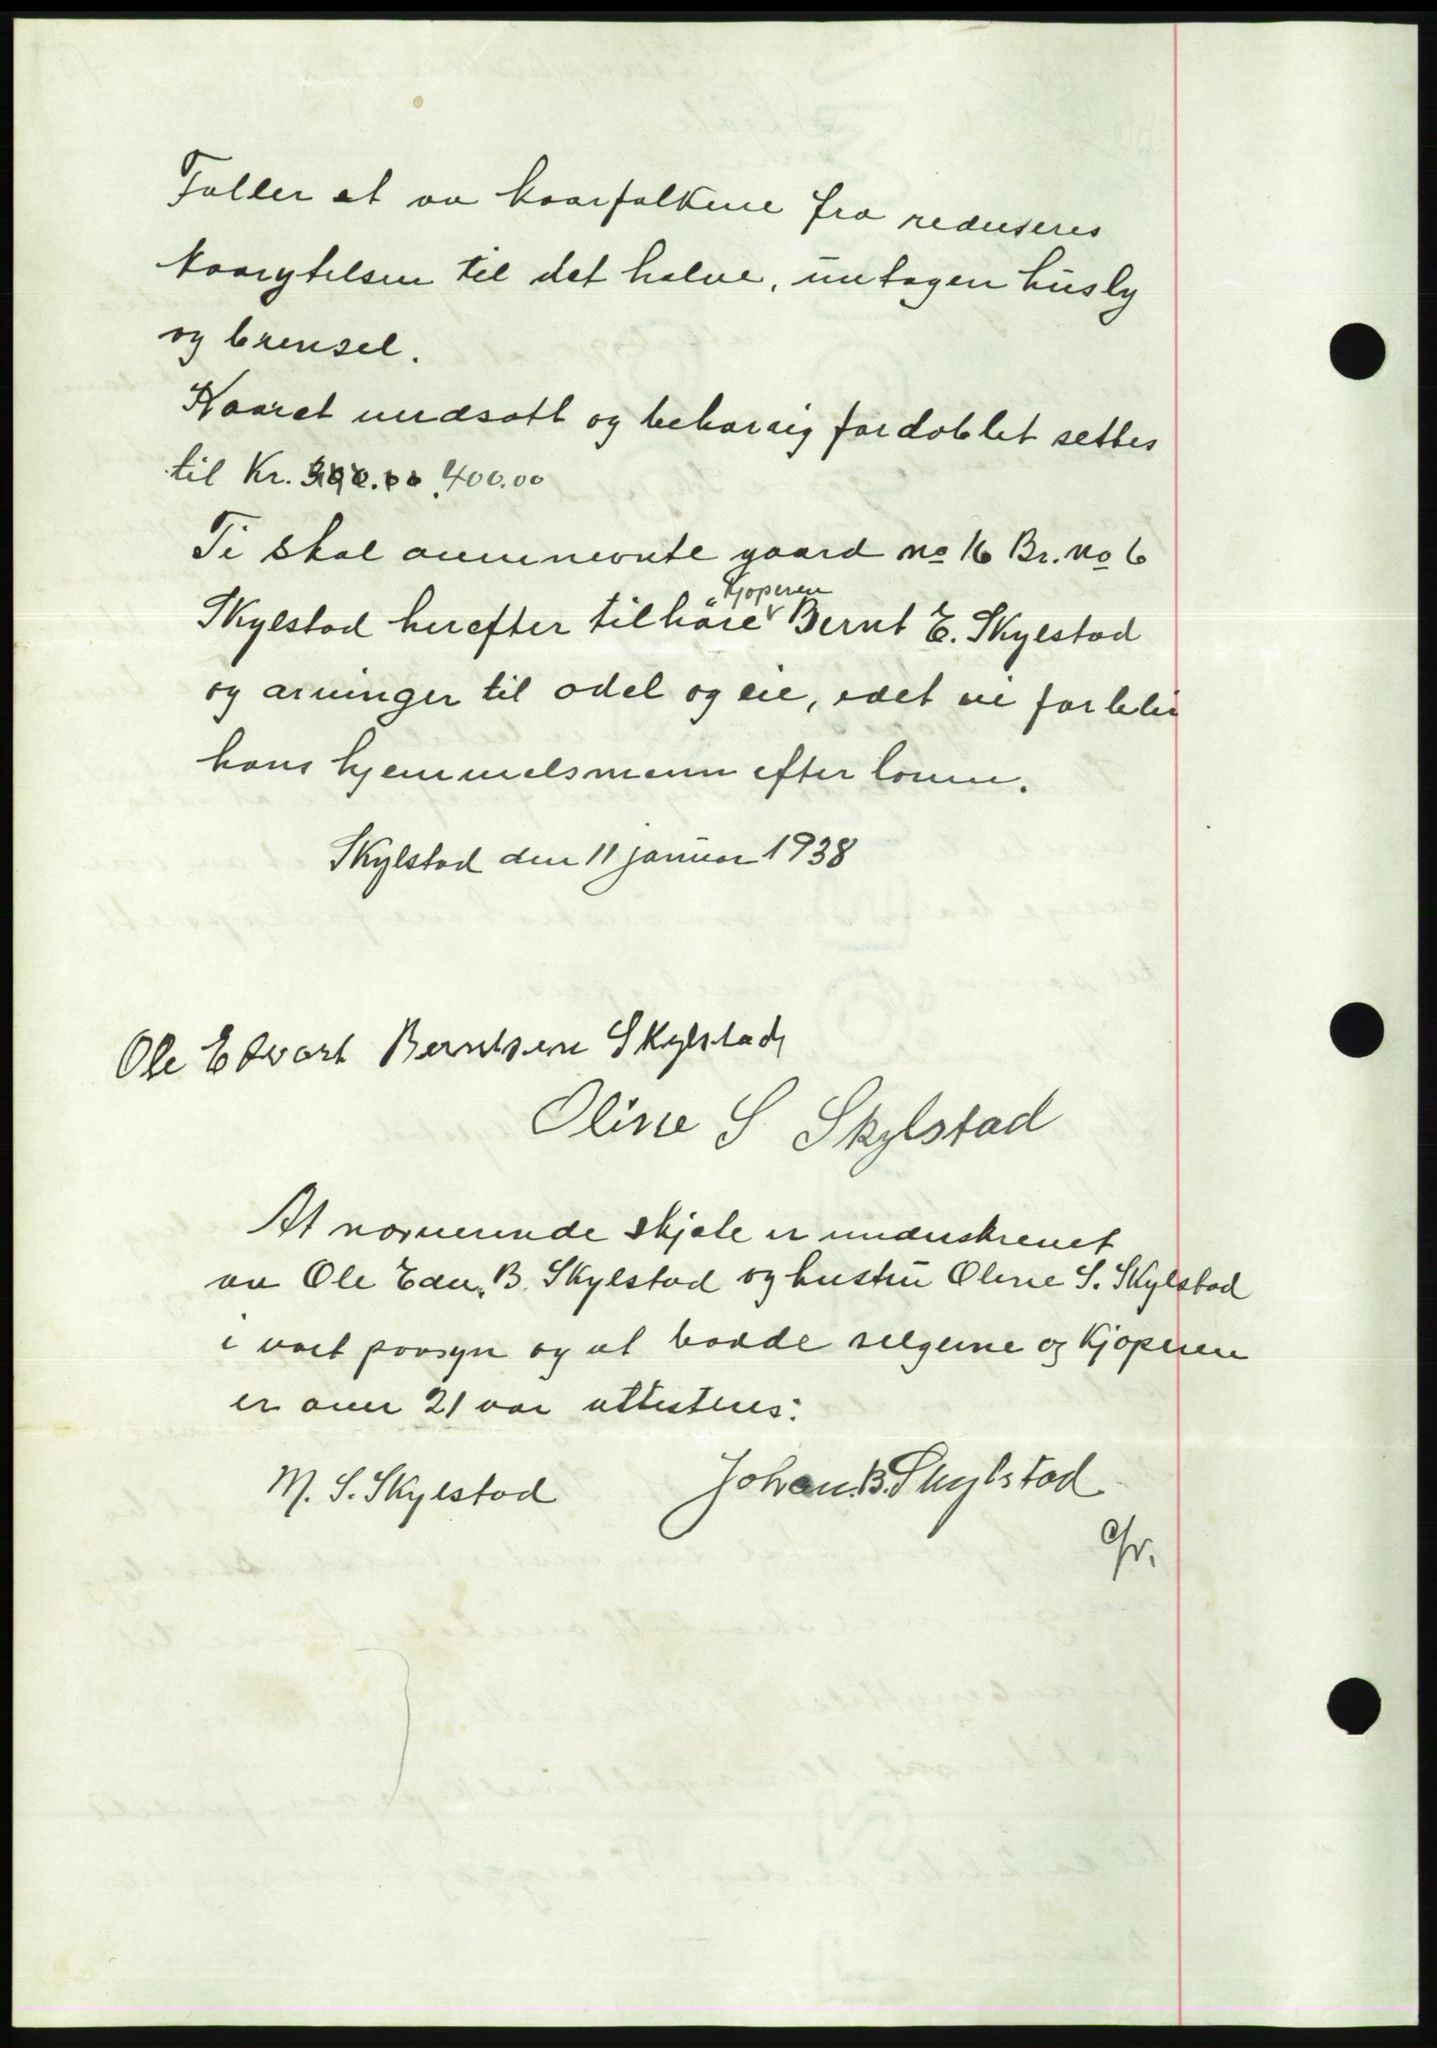 Faller et av kaarfolkene fra reduseres
kaarytelsen til det halve, untagen husly
og brensel.
Kaaret undsatt og beharig fordoblet settes
til Kr. 400.00
Ti skal ovennevnte gaard no 16 Br. no 6
Kjøperen
Skylstad herefter tilhöre Bernt E. Skylstad
og arvinger til odel og eie, idet vi forblir
hans hjemmelsmenn efter loven.
Skylstad den 11 januar 1938
Ole Edvart Berntsen Skylstad
Oline S Skylstad
At nærværende skjøte er underskrevet
av Ole Edv. B. Skylstad og hustru Oline S. Skylstad
i vort paasyn og at baade selgerne og Kjøperen
er over 21 aar attesteres:
M. S. Skylstad Johan B. Skylstad